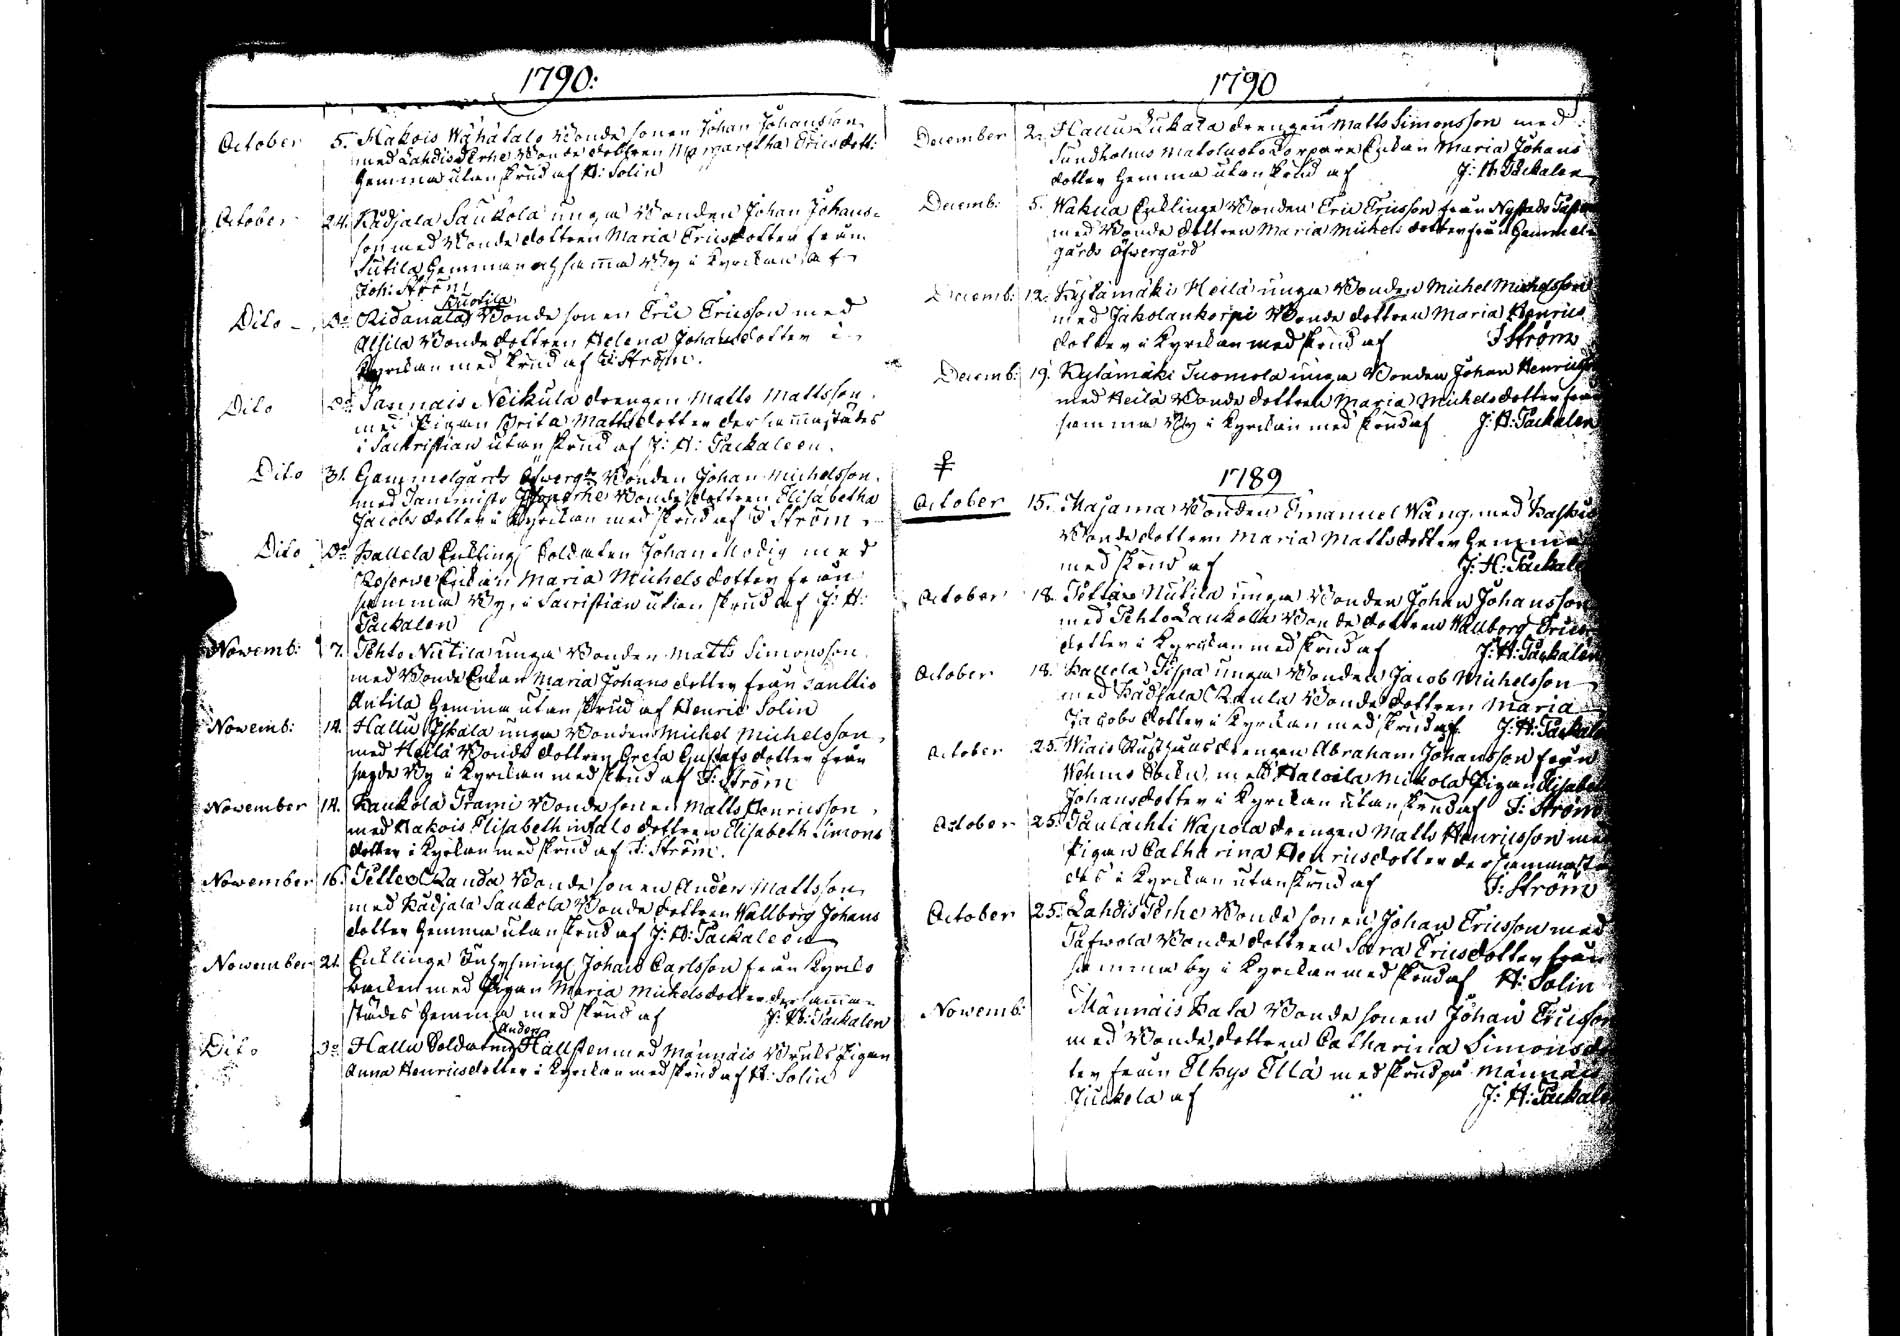 1790:
October 5. Hakois Wähätalo Bonde sonen Johan Johansson
med Lahdis Perhe Bonde dottren Margaretha Erics dott:
hemma utan skrud af H: Solin
October 24. Kadjala Saukola unga Bonden Johan Johans=
son med Bonde dottren Maria Ericsdotter från
Sutila hemman och samma By i Kyrckan af
Joh: Ström
Dito - Do Ridanala Knotila Bonde sonen Eric Ericsson med
Alsila Bonde dottren Helena Johansdotter i
Kyrckan med skrud af J: Ström.
Dito Do Sannais Neikula drengen Matts Mattsson
med Pigan Brita Mattsdotter dersammastädes
i Sackristian utan skrud af J: H: Packaleen.
Dito 31. Gammelgårds Öfverg: Bonden Johan Michelsson
med Sammists Perhe Bonde dottren Elisabetha
Jacobs dotter i Kyrckan med skrud af J Ström
Dito Do Kallela Enkling Soldaten Johan Modig med
Reserve Enkan Maria Michelsdotter från
samma By, i Sacristian utan skrud af J: H:
Packalen
Novemb: 7. Tehto Nutila unga Bonden Matts Simonsson
med Bonde Enkan Maria Johans dotter från Santtio
Antila hemma utan skrud af Henric Solin
Novemb: 14. Hallu Iskala unga Bonden Michel Michelsson
med Heilä Bonde dottren Greta Gustafs dotter från
sagde By i Kyrckan med skrud af J: Ström
November 14. Kaukola Prami Bonde sonen Matts Henricsson
med Hakois Elisabeth dottren Elisabeth Simons
dotter i Kyrckan med skrud af J: Ström.
November 16. Telles Randa Bonde sonen Anders Mattsson
med Kadjala Saukola Bonde dottren Wallborg Johans
dotter hemma utan skrud af J: H: Packaleen
November 21. Enklinge Inhysning Johan Carlsson från Kyrcko
backen med Pigan Maria Michelsdotter dersamma=
städes hemma med skrud af J: H: Packalen
Dito Do Hallu Soldaten Anders Hällsten med Männäis Bruks Pigan
Anna Henricsdotter i Kyrckan med skrud af H: Solin
1790
December 2. Hallu Lukala drengen Matts Simonsson med
Sundholms Korpare Enkan Maria Johans
dotter hemma utan skrud af J: H: Packalen
Decemb: 5. Wakua Enklinge Bonden Eric Ericsson från Nystads
med Bonde dottren Maria Michels dotter från Gammel
gårds Öfvergård
Decemb: 12. Kylämäki Heilä unga Bonden Michel Michelsson
med Jakolankorpi Bonde dottren Maria Henrics
dotter i Kyrckan med skrud af J Ström
Decemb: 19. Kylämäki Tuomola unga Bonden Johan Henricsson
med Heilä Bonde dottren Maria Michelsdotter från
samma By i Kyrckan med skrud af J: H: Packalen
1789
October 15. Majama Bonden Emanuel Wäng, med
Bonde dottren Maria Mattsdotter hemma
med skrud af J: H: Packale
October 18. Nutila unga Bonden Johan Johansson
med Tehto Laukola Bonde dottren Wallborg Erics
dotter i Kyrckan med skrud af J: H: Packalen
October 18. Kallela Pispa unga Bonden Jacob Michelsson
med Kadjala Raula Bonde dottren Maria
Jacobs dotter i Kyrckan med skrud af J: H: Packale
October 25. Wiais Rusthåls drengen Abraham Johansson från
Wehmo Sockn, med Haloila Mickola Pigan Elisabet
Johansdotter i Kyrckan utan skrud af J: Ström
October 25. Paulachti Wapola drengen Matts Henricsson med
Pigan Catharina Henricsdotter dersammastä
des i Kyrckan utan skrud af J: Ström
October 25. Lahdis Perhe Bonde sonen Johan Ericsson med
Tafwola Bonde dottren Sara Ericsdotter från
samma by i Kyrckan med skrud af H: Solin
Novemb: Männäis Kala Bonde sonen Johan Ericsson
med Bonde dottren Catharina Simonsdo
ter från Elhys Ellä med skrud på Männäis
Juckola af J: H: Packale